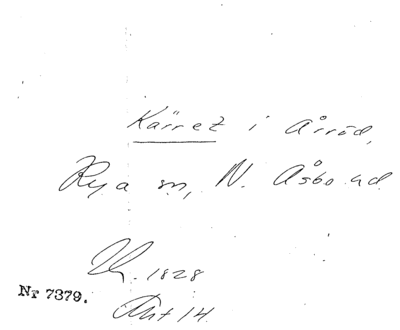 Kärret i Årröd,
Rya sn, N. Åsbo hd
Uk. 1828
Nr 7379.
Akt 14.